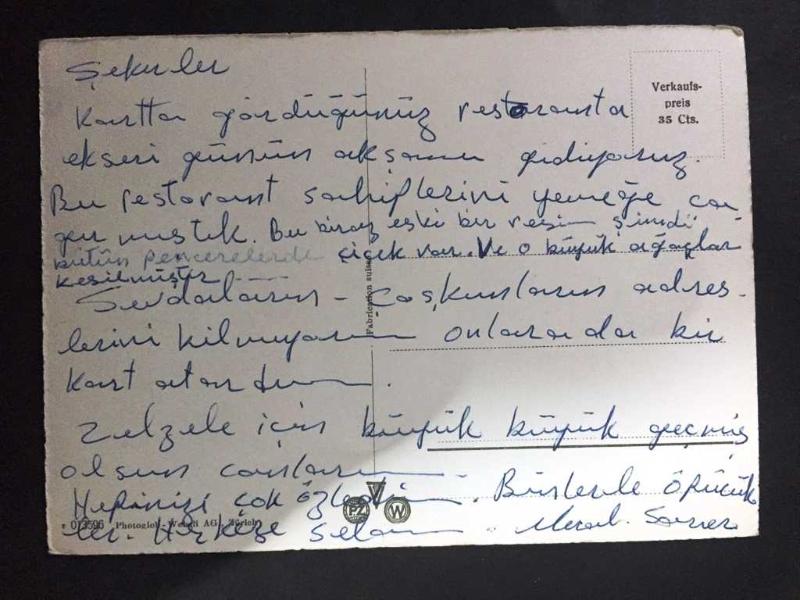 Şekerler
Kartta gördüğünüz restoranta
ekseri günün akşamı gidiyoruz.
Bu restorant sahiplerini yemeğe ça
ğırmıştık. Bu biraz eski bir resim şimdi
bütün pencerelerde çiçek var. Ve o büyük ağaçlar
kesilmiştir
Sevdaların - Coşkunların adres-
lerini bilmiyorum onlarada bir
kart atardım.
Zelzele için büyük büyük geçmiş
olsun canlarım
Hepinizi çok özledim. Binlerle öpücük
ler. Herkeze selam.
Verkaufs-
preis
35 Cts.
Fabrication suisse
013596 Photoglob-Wehrli AG., Zürich
PZ W